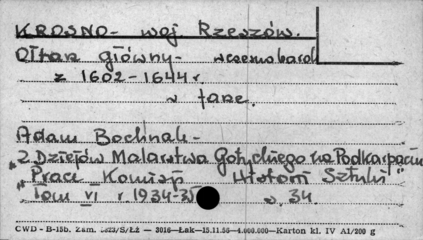 KROSNO - woj Rzeszów.
Ołtarz główny -
z 1602-1644 r.
w farze.
Adam Bochnak -
"Z Dziejów Malarstwa Gotyckiego na Podkarpaciu
"Prace Komisji Historii Sztuki"
Tom VI r 1934-35 s. 34.
CWD - B-15b. Zam. S/Łż — 3016 — Łsk — 15.11.55 — 4.000.000 — Karton kl. IV A1/200 g